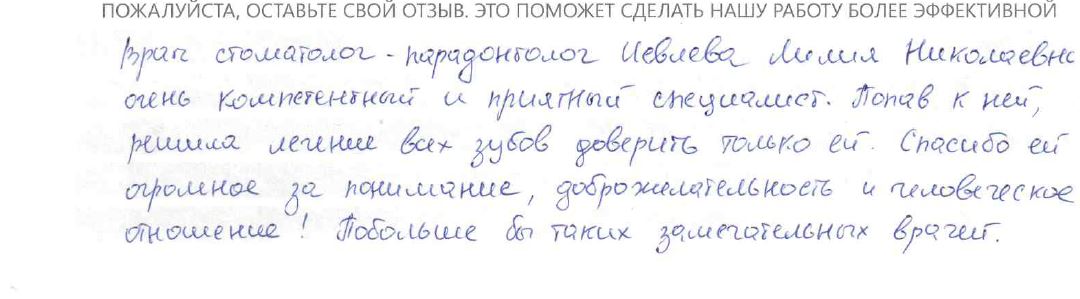 ПОЖАЛУЙСТА, ОСТАВЬТЕ СВОЙ ОТЗЫВ. ЭТО ПОМОЖЕТ СДЕЛАТЬ НАШУ РАБОТУ БОЛЕЕ ЭФФЕКТИВНОЙ
Врач стоматолог - парадонтолог Иевлева Лилия Николаевна
очень компетентный и приятный специалист. Попав к ней,
решила лечение всех зубов доверить только ей. Спасибо ей
огромное за понимание, доброжелательность и человеческое
отношение! Побольше бы таких замечательных врачей.